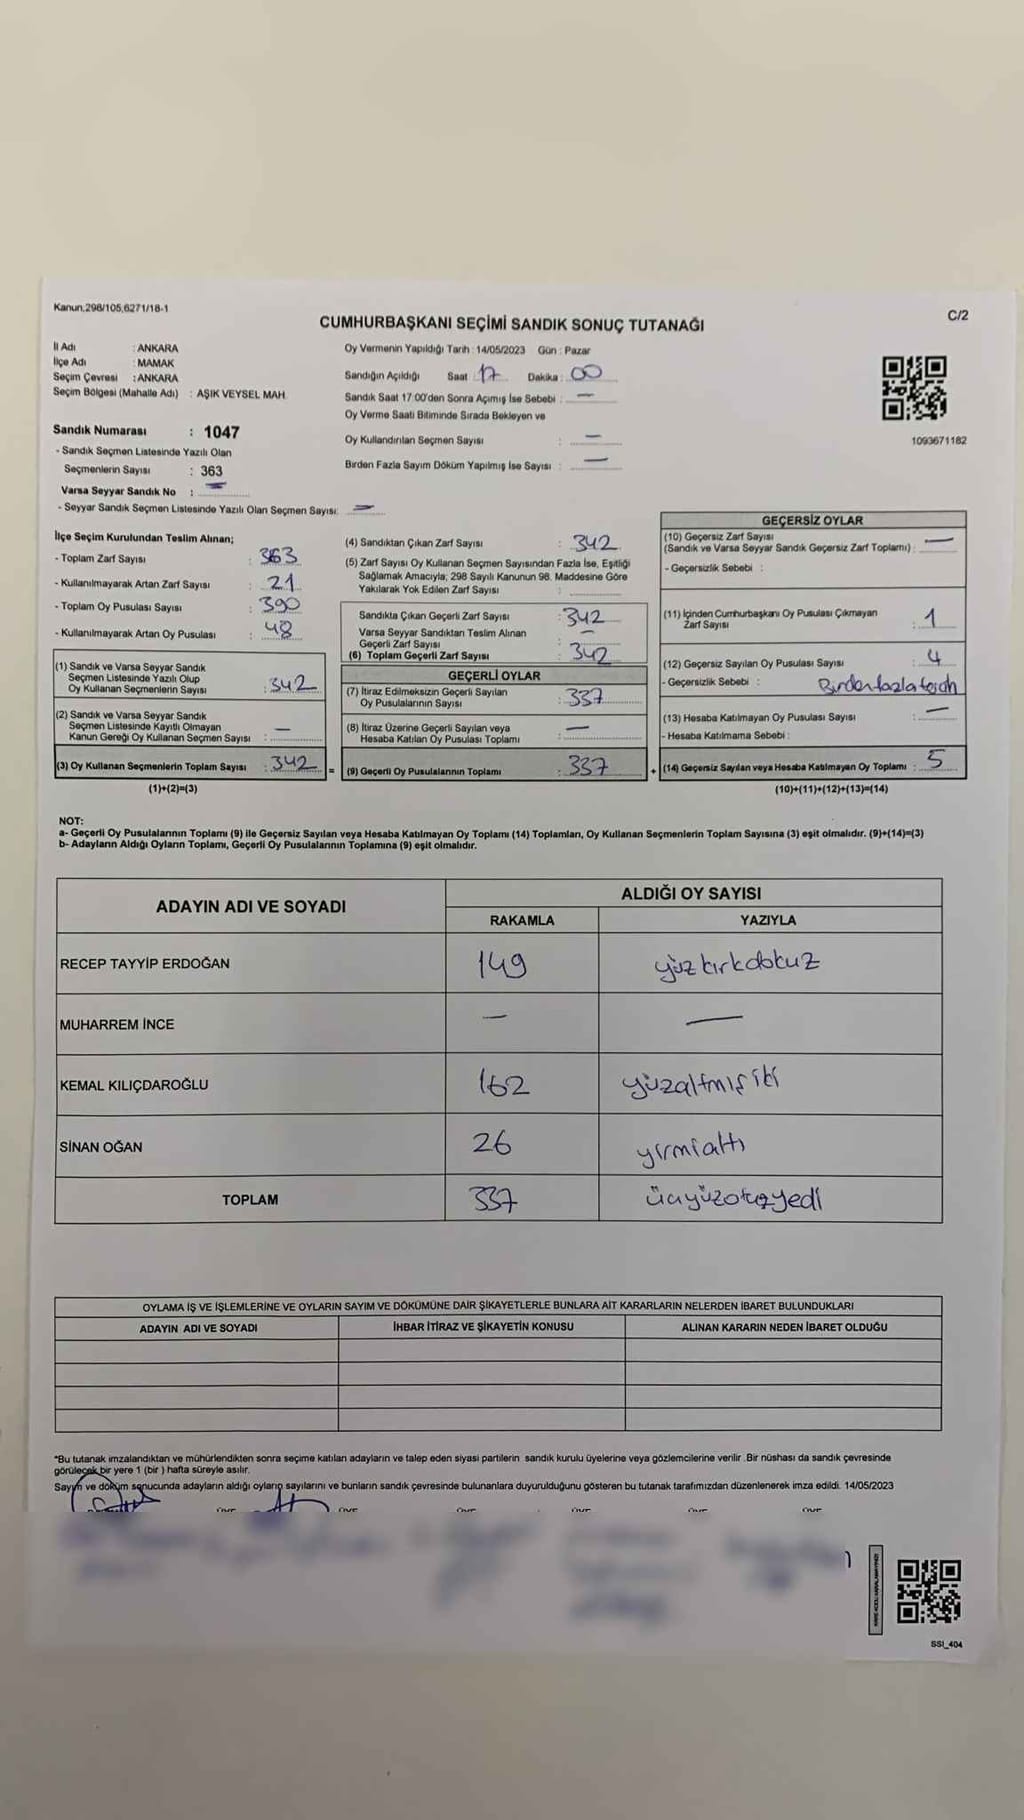 Kanun.298/105,6271/18-1
C/2
CUMHURBAŞKANI SEÇİMİ SANDIK SONUÇ TUTANAĞI
İl Adı : ANKARA
İlçe Adı : MAMAK
Seçim Çevresi : ANKARA
Seçim Bölgesi (Mahalle Adı) : AŞIK VEYSEL MAH.
Sandık Numarası : 1047
- Sandık Seçmen Listesinde Yazılı Olan
Seçmenlerin Sayısı : 363
Varsa Seyyar Sandık No : —
- Seyyar Sandık Seçmen Listesinde Yazılı Olan Seçmen Sayısı: —
Oy Vermenin Yapıldığı Tarih : 14/05/2023 Gün : Pazar
Sandığın Açıldığı Saat : 17 Dakika : 00
Sandık Saat 17:00'den Sonra Açımış İse Sebebi : —
Oy Verme Saati Bitiminde Sırada Bekleyen ve
Oy Kullandırılan Seçmen Sayısı : —
Birden Fazla Sayım Döküm Yapılmış İse Sayısı : —
1093671182
İlçe Seçim Kurulundan Teslim Alınan;
- Toplam Zarf Sayısı : 363
- Kullanılmayarak Artan Zarf Sayısı : 21
- Toplam Oy Pusulası Sayısı : 390
- Kullanılmayarak Artan Oy Pusulası : 48
(1) Sandık ve Varsa Seyyar Sandık
Seçmen Listesinde Yazılı Olup
Oy Kullanan Seçmenlerin Sayısı : 342
(2) Sandık ve Varsa Seyyar Sandık
Seçmen Listesinde Kayıtlı Olmayan
Kanun Gereği Oy Kullanan Seçmen Sayısı : —
(3) Oy Kullanan Seçmenlerin Toplam Sayısı : 342 =
(1)+(2)=(3)
(4) Sandıktan Çıkan Zarf Sayısı : 342
(5) Zarf Sayısı Oy Kullanan Seçmen Sayısından Fazla İse, Eşitliği
Sağlamak Amacıyla; 298 Sayılı Kanunun 98. Maddesine Göre
Yakılarak Yok Edilen Zarf Sayısı :
Sandıkta Çıkan Geçerli Zarf Sayısı : 342
Varsa Seyyar Sandıktan Teslim Alınan
Geçerli Zarf Sayısı : —
(6) Toplam Geçerli Zarf Sayısı : 342
GEÇERLİ OYLAR
(7) İtiraz Edilmeksizin Geçerli Sayılan
Oy Pusulalarının Sayısı : 337
(8) İtiraz Üzerine Geçerli Sayılan veya
Hesaba Katılan Oy Pusulası Toplamı : —
(9) Geçerli Oy Pusulalarının Toplamı : 337 +
GEÇERSİZ OYLAR
(10) Geçersiz Zarf Sayısı
(Sandık ve Varsa Seyyar Sandık Geçersiz Zarf Toplamı) : —
- Geçersizlik Sebebi :
(11) İçinden Cumhurbaşkanı Oy Pusulası Çıkmayan
Zarf Sayısı : 1
(12) Geçersiz Sayılan Oy Pusulası Sayısı : 4
- Geçersizlik Sebebi : Birden fazla tercih
(13) Hesaba Katılmayan Oy Pusulası Sayısı : —
- Hesaba Katılmama Sebebi :
(14) Geçersiz Sayılan veya Hesaba Katılmayan Oy Toplamı : 5
(10)+(11)+(12)+(13)=(14)
NOT:
a- Geçerli Oy Pusulalarının Toplamı (9) ile Geçersiz Sayılan veya Hesaba Katılmayan Oy Toplamı (14) Toplamları, Oy Kullanan Seçmenlerin Toplam Sayısına (3) eşit olmalıdır. (9)+(14)=(3)
b- Adayların Aldığı Oyların Toplamı, Geçerli Oy Pusulalarının Toplamına (9) eşit olmalıdır.
ADAYIN ADI VE SOYADI
ALDIĞI OY SAYISI
RAKAMLA YAZIYLA
RECEP TAYYİP ERDOĞAN 149 yüzkırkdokuz
MUHARREM İNCE — —
KEMAL KILIÇDAROĞLU 162 yüzaltmışiki
SİNAN OĞAN 26 yirmialtı
TOPLAM 337 üçyüzotuzyedi
OYLAMA İŞ VE İŞLEMLERİNE VE OYLARIN SAYIM VE DÖKÜMÜNE DAİR ŞİKAYETLERLE BUNLARA AİT KARARLARIN NELERDEN İBARET BULUNDUKLARI
ADAYIN ADI VE SOYADI İHBAR İTİRAZ VE ŞİKAYETİN KONUSU ALINAN KARARIN NEDEN İBARET OLDUĞU
*Bu tutanak imzalandıktan ve mühürlendikten sonra seçime katılan adayların ve talep eden siyasi partilerin sandık kurulu üyelerine veya gözlemcilerine verilir. Bir nüshası da sandık çevresinde
görülecek bir yere 1 (bir ) hafta süreyle asılır.
Sayım ve döküm sonucunda adayların aldığı oyların sayılarını ve bunların sandık çevresinde bulunanlara duyurulduğunu gösteren bu tutanak tarafımızdan düzenlenerek imza edildi. 14/05/2023
SSI_404